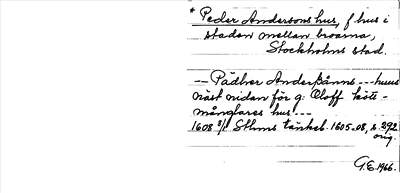 * Peder Anderssons hus, f hus i
staden mellan broarna,
Stockholms stad.
— Pädher Anderßånns --- huus
näst nidan för g: Oloff kött-
månglares hus ---
1608 3/1 Sthms tänkeb. 1605-08, s. 292
orig.
G.E. 1966.